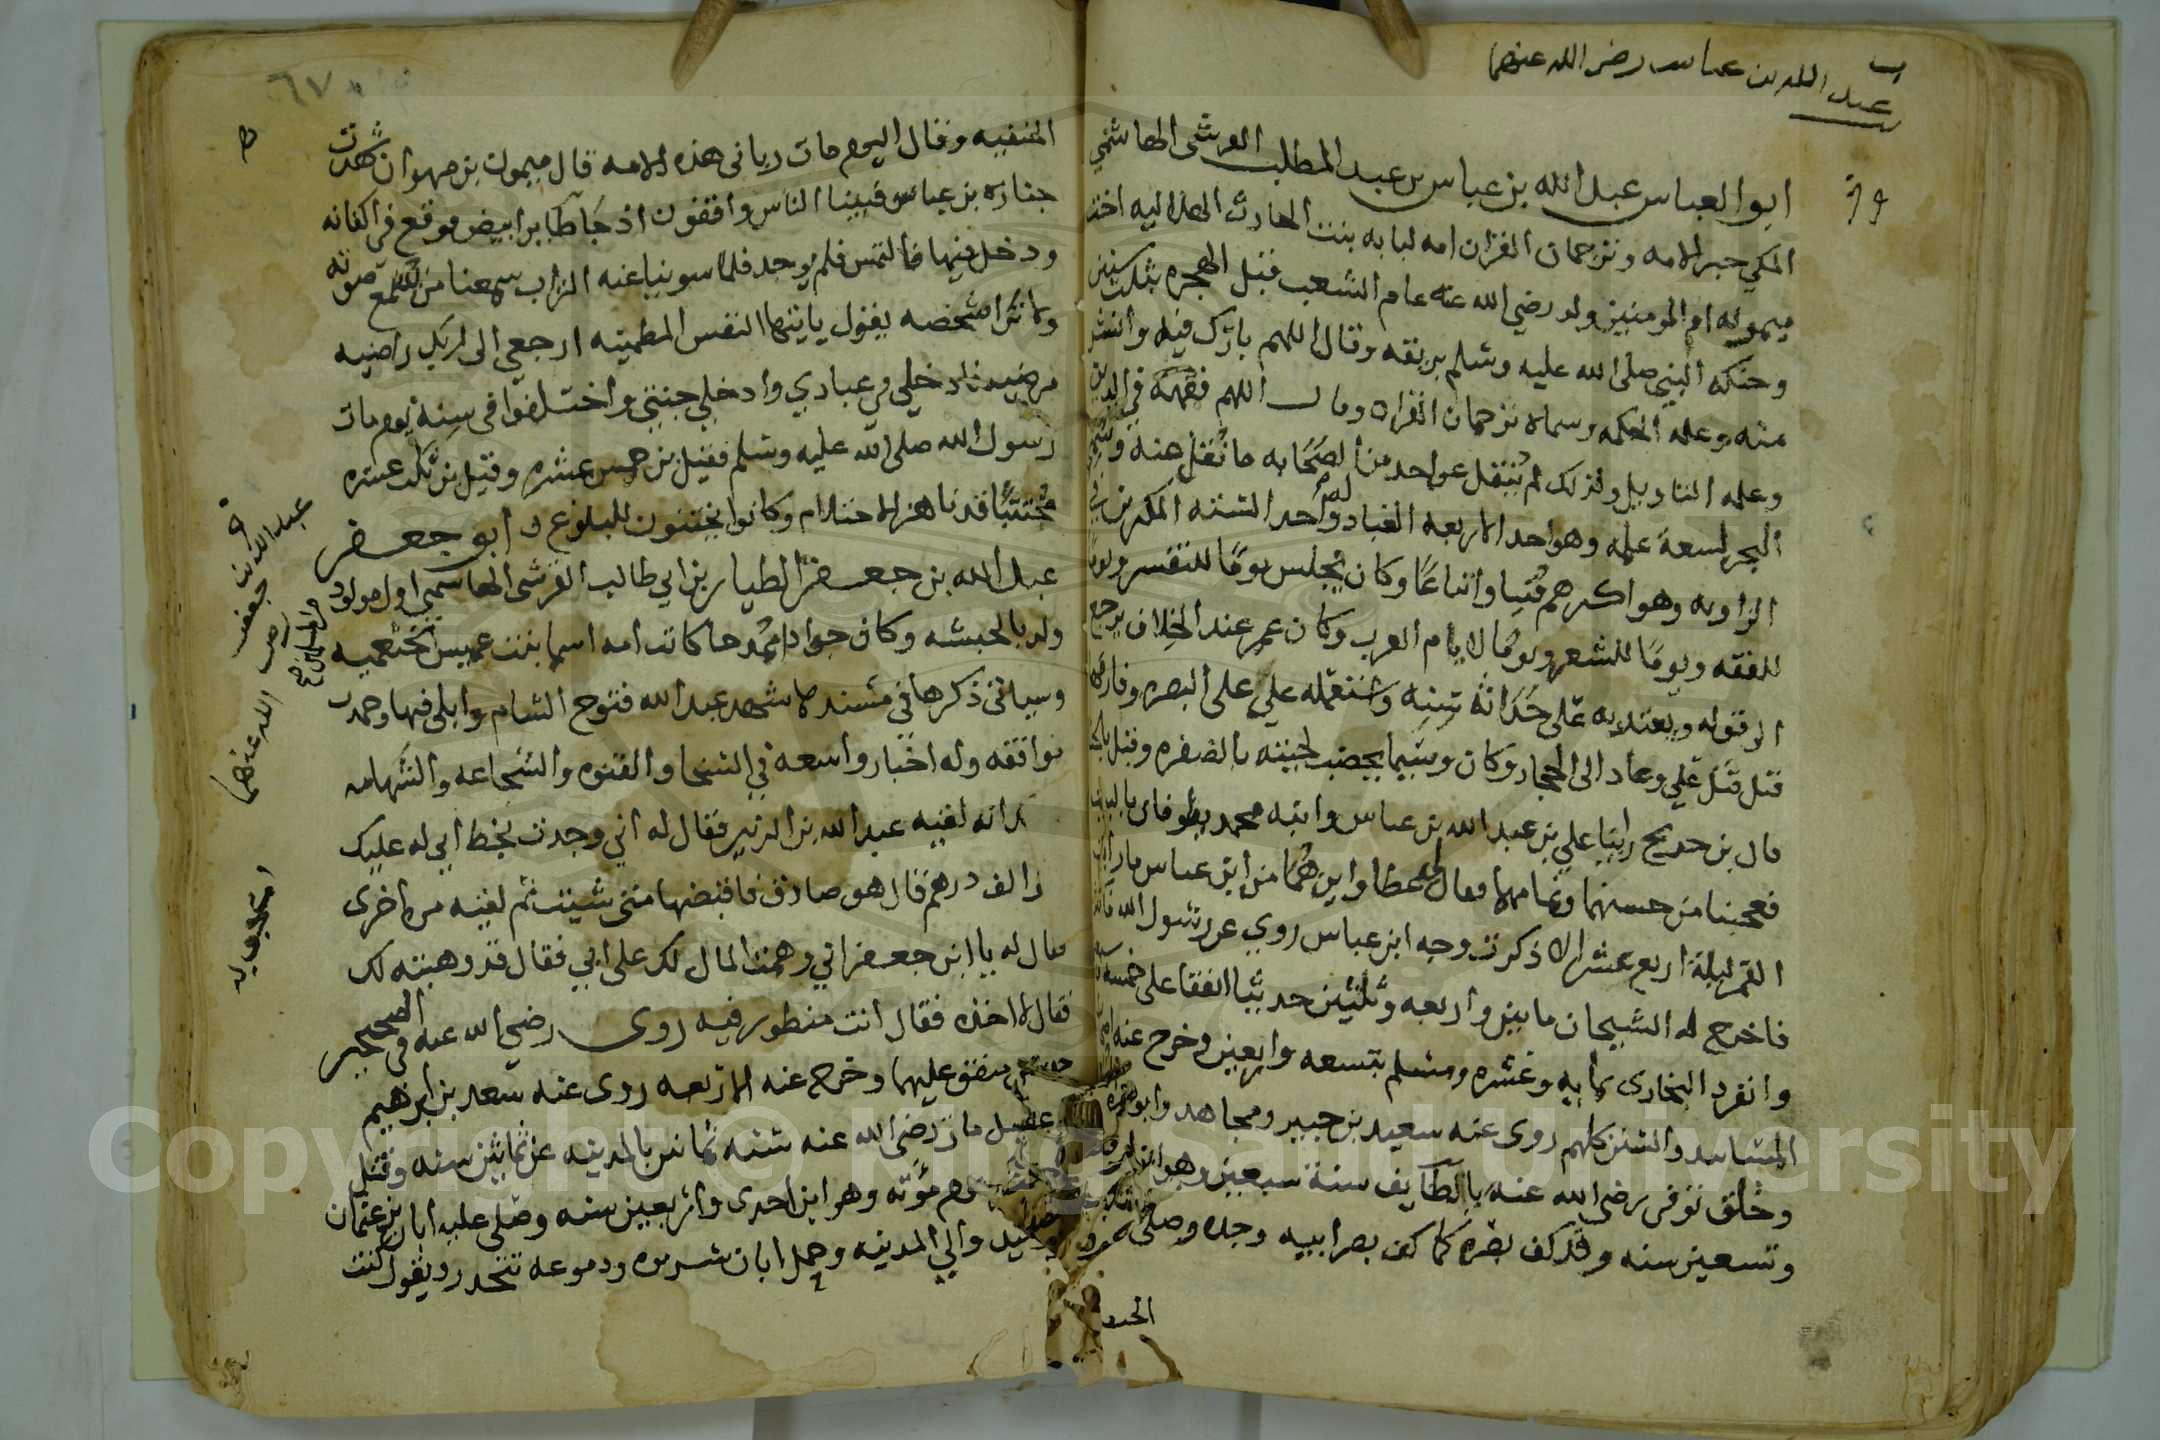 عبد الله بن عباس رضي الله عنهما
ابو العباس عبد الله بن عباس بن عبد المطلب القرشي الهاشمي
المكي حبر الامه وترجمان القران امه لبابه بنت الحارث الهلاليه اخت
ميمونه ام المومنين ولد رضي الله عنه عام الشعب قبل الهجره بثلث سنين
وحنكه النبي صلى الله عليه وسلم بريقه وقال اللهم بارك فيه وانشر
منه وعلمه الحكمه وسماه ترجمان القران وقال اللهم فقهه في الدين
وعلمه التاويل ولذلك لم ينقل عن واحد من الصحابه ما نقل عنه وسمي
البحر لسعة علمه وهو احد الاربعه العباد له واحد الستته المكثرين في
الروايه وهو اكثرهم فتيا واتباعا وكان يجلس يوما للتفسير ويوما
للفقه ويوما للشعر ويوما لايام العرب وكان عمر عند الخلاف يرجع
الى قوله ويعتد به على حداثة سنه واستعمله علي على البصره وفارقها
قبل قتل علي وعاد الى الحجاز وكان وسيما يخضب لحيته بالصفره وقيل بالحنا
قال بن جريج راينا علي بن عبد الله بن عباس وابنه محمد يطوفان بالبيت
فعجبنا من حسنهما وتمامهما فقال عطا واين هما من ابن عباس ما رايت
القمر ليلة اربع عشر الا ذكرت وجه ابن عباس روي عن رسول الله
فاخرج له الشيخان مايتين واربعه وثلثين حديثا اتفقا على خمسه
وانفرد البخاري بمايه وعشره ومسلم بتسعه واربعين وخرج عنه
المسانيد والسنن كلهم روى عنه سعيد بن جبير ومجاهد وابو
وخلق توفي رضي الله عنه بالطايف سنة سبعين وهو ابن
وتسعين سنه وقد كف بصره كما كف بصر ابيه وجده وصلى
المنفيه وقال اليوم مات رباني هذه الامه قال ميمون بن مهران شهدت
جنازه بن عباس فبينا الناس واقفون اذ جا طاير ابيض فوقع في اكفانه
ودخل فيها فالتمس فلم يوجد فلما سوينا عنه التراب سمعنا من يسمع صوته
ولا نرا شخصه يقول يايتها النفس المطمينه ارجعي الى ربك راضيه
مرضيه فادخلي في عبادي وادخلي جنتي واختلفوا في سنه يوم مات
رسول الله صلى الله عليه وسلم فقيل بن خمس عشره وقيل بن ثلث عشره
مختتنا قد ناهز الاحتلام وكانوا يختنون للبلوغ ابو جعفر
عبد الله بن جعفر الطيار بن ابي طالب القرشي الهاشمي اول مولود
ولد بالحبشه وكان جوادا ممدوحا كانت امه اسما بنت عميس الخثعميه
وسياتي ذكرها في مسندها شهد عبد الله فتوح الشام وابلى فيها وحمدت
مواقفه وله اخبار واسعه في السخا والفتوه والشجاعه والشهامه
انه لقيه عبد الله بن الزبير فقال له اني وجدت بخط ابي له عليك
الف درهم قال هو صادق فاقبضها متى شيت ثم لقيه مره اخرى
فقال له يا ابن جعفر اني وهمت المال لك على ابي فقال قد وهبته لك
فقال لا اخذه فقال انت منظور فيه روى رضي الله عنه في الصحيحين
متفق عليهما وخرج عنه الاربعه روى عنه سعد بن ابرهيم
مات رضي الله عنه سنه ثمانين بالمدينه عن ثمانين سنه وقتل
يوم مؤته وهو ابن احدى واربعين سنه وصلى عليه ابان بن عثمان
والي المدينه وحمل ابان سريره ودموعه تتحدر ويقول كنت
عبد الله بن جعفر رضي الله عنهما